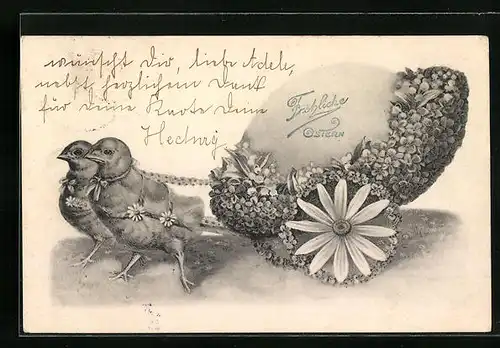 wünscht Dir, liebe Adele,
nebst herzlichem Dank
für deine Karte Deine
Hedwig
Fröhliche
OSTERN